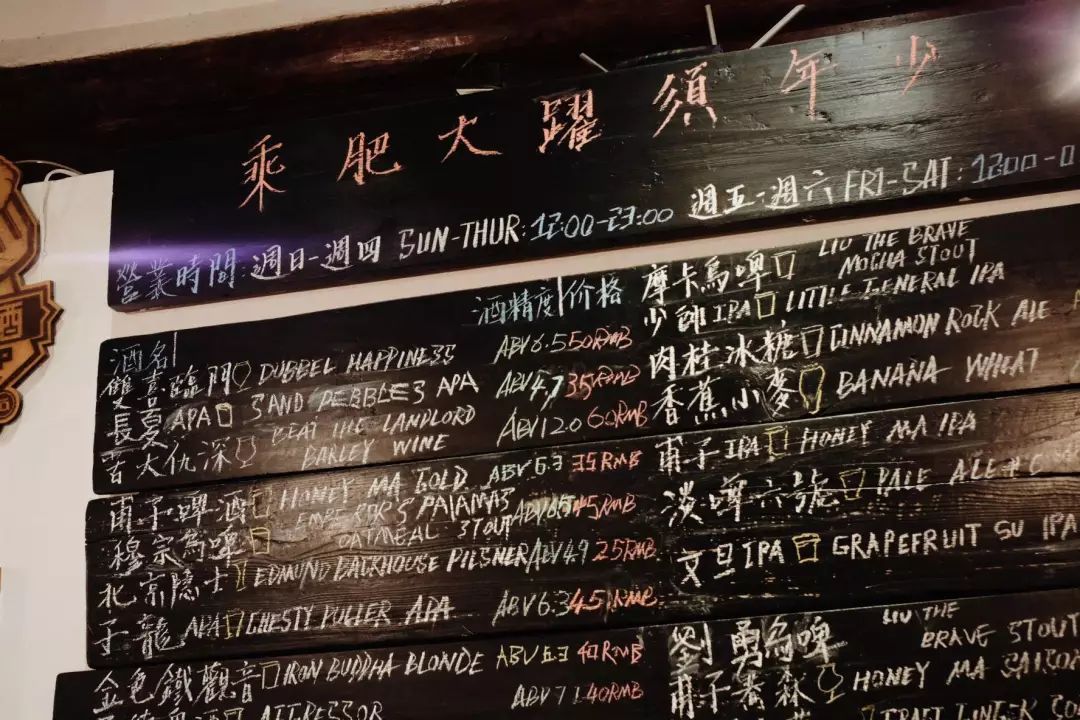 乘肥大躍須年少
營業時間:週日-週四 SUN-THUR:12:00-23:00 週五-週六 FRI-SAT:12:00-0
酒名 酒精度 价格
雙喜臨門 DUBBEL HAPPINESS ABV 6.5 50RMB
長夏 APA SAND PEBBLES APA ABV 4.7 35RMB
苦大仇深 BEAT THE LANDLORD BARLEY WINE ABV 12.0 60RMB
甫子啤酒 HONEY MA GOLD ABV 6.3 35RMB
穆宗烏啤 EMPERORS PAJAMAS OATMEAL STOUT 45RMB
北京隱士 EDMUND BACKHOUSE PILSNER ABV 4.9 25RMB
子龍 APA CHESTY PULLER APA ABV 6.3 45RMB
金色鐵觀音 IRON BUDDHA BLONDE ABV 40RMB
ABV 7.1 40RMB
摩卡烏啤 LIU THE BRAVE MOCHA STOUT
少帥 IPA LITTLE GENERAL IPA
肉桂冰糖 CINNAMON ROCK ALE
香蕉小麥 BANANA WHEAT
甫子 IPA HONEY MA IPA
淡啤六號 PALE ALE #6
文旦 IPA GRAPEFRUIT SU IPA
劉勇烏啤 LIU THE BRAVE STOUT
甫子賽森 HONEY MA SAISO
酒